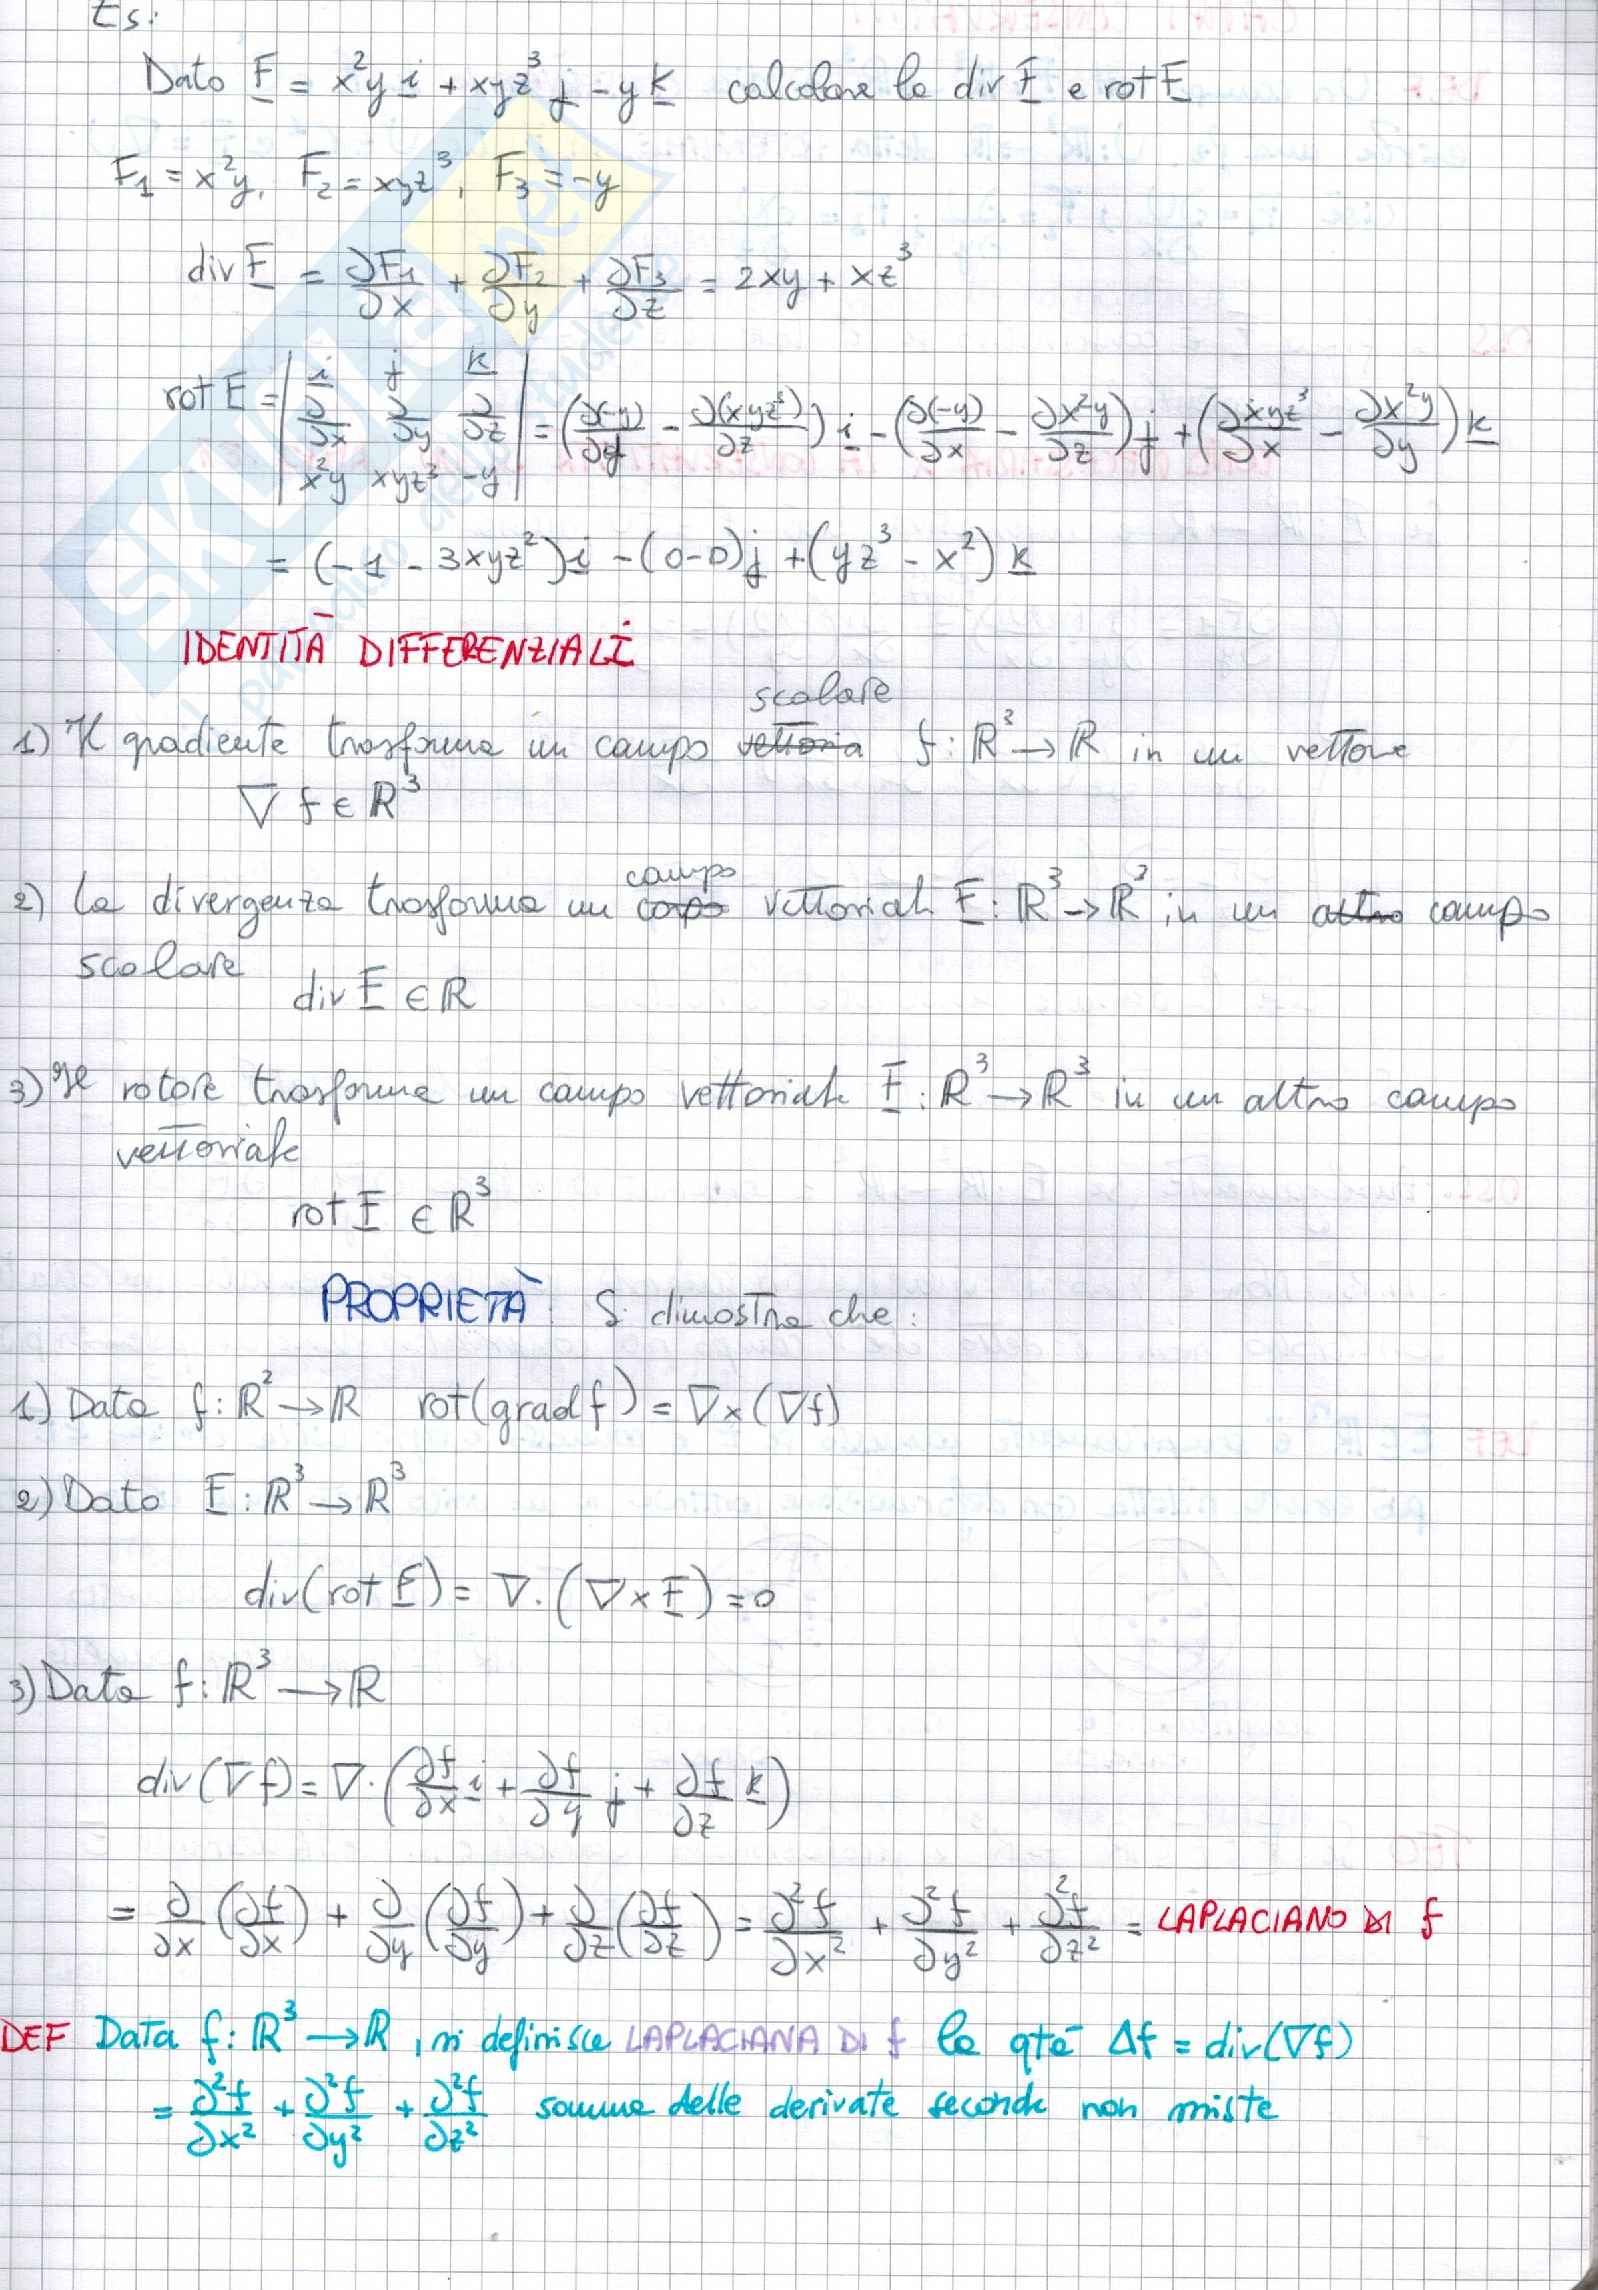 Es:
Dato F = x²y i + xyz³ j - y k calcolare la div F e rot F
F₁ = x²y, F₂ = xyz³, F₃ = -y
div F = ∂F₁/∂x + ∂F₂/∂y + ∂F₃/∂z = 2xy + xz³
rot F = | i j k ; ∂/∂x ∂/∂y ∂/∂z ; x²y xyz³ -y | = (∂(-y)/∂y - ∂(xyz³)/∂z) i - (∂(-y)/∂x - ∂x²y/∂z) j + (∂xyz³/∂x - ∂x²y/∂y) k
= (-1 - 3xyz²) i - (0-0) j + (yz³ - x²) k
IDENTITÀ DIFFERENZIALI
scalare
1) Il gradiente trasforma un campo vettoria f: ℝ³ → ℝ in un vettore
∇f ∈ ℝ³
campo
2) La divergenza trasforma un corpo vettoriale F: ℝ³ → ℝ³ in un altro campo
scalare
div F ∈ ℝ
3) Il rotore trasforma un campo vettoriale F: ℝ³ → ℝ³ in un altro campo
vettoriale
rot F ∈ ℝ³
PROPRIETÀ Si dimostra che:
1) Data f: ℝ² → ℝ rot(grad f) = ∇×(∇f)
2) Dato F: ℝ³ → ℝ³
div(rot F) = ∇·(∇×F) = 0
3) Data f: ℝ³ → ℝ
div(∇f) = ∇·(∂f/∂x i + ∂f/∂y j + ∂f/∂z k)
= ∂/∂x (∂f/∂x) + ∂/∂y (∂f/∂y) + ∂/∂z (∂f/∂z) = ∂²f/∂x² + ∂²f/∂y² + ∂²f/∂z² = LAPLACIANO DI f
DEF Data f: ℝ³ → ℝ, si definisce LAPLACIANA DI f la qtà Δf = div(∇f)
= ∂²f/∂x² + ∂²f/∂y² + ∂²f/∂z² somma delle derivate seconde non miste
SKUOLA.net
il paradiso dello studente